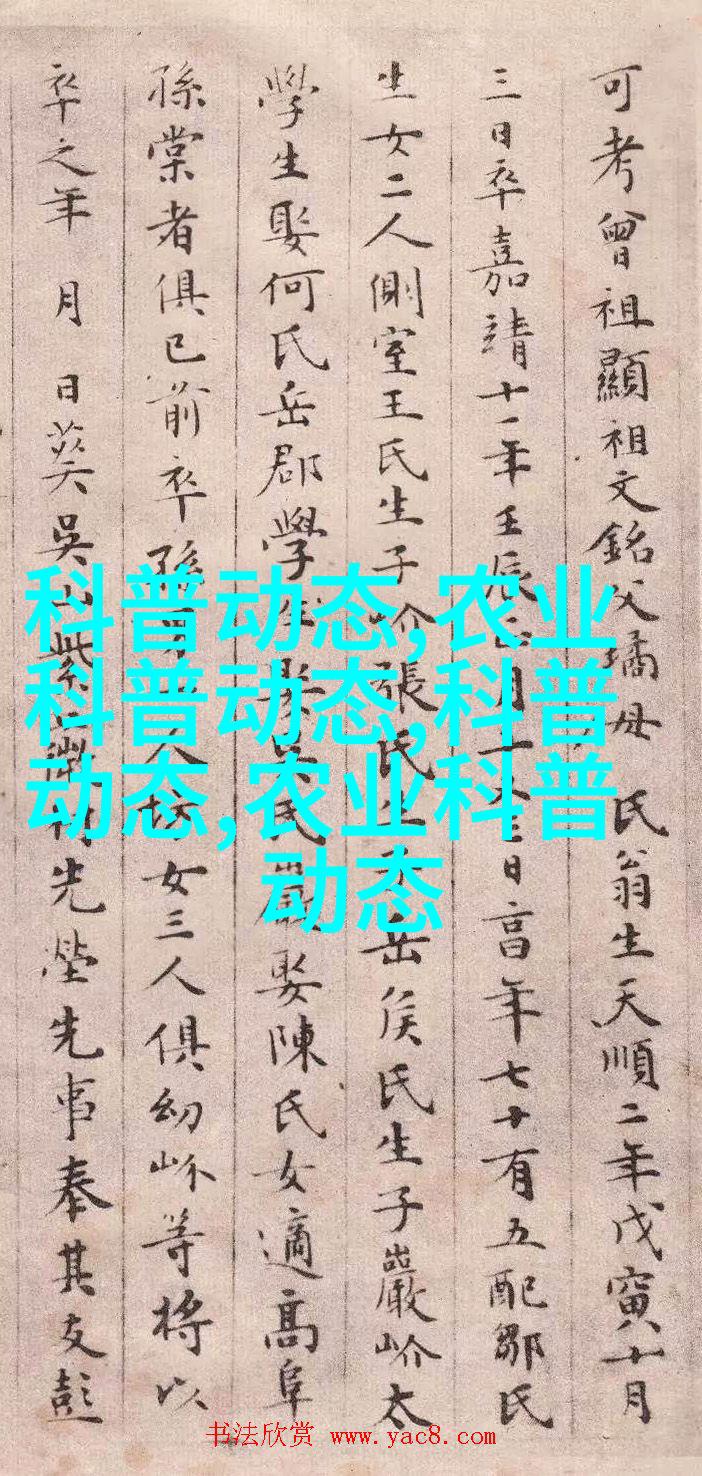 可考曾祖顯祖文銘父璚母 氏翁生天順二年戊寅十月
三日卒嘉靖十一年壬辰正月十八日亯年七十有五配鄒氏
生女二人側室王氏生子岕張氏生子岳侯氏生子巖岕太
學生娶何氏岳郡學生娶吴氏巖娶陳氏女適高阜
孫棠者俱已前卒孫男 人坊女三人俱幼岕等將以
卒之年 月 日葬吳山紫 先塋先事奉其友彭
科普动态,农业
科普动态,科普
动态,农业科普
动态
书法欣赏 www.yac8.com